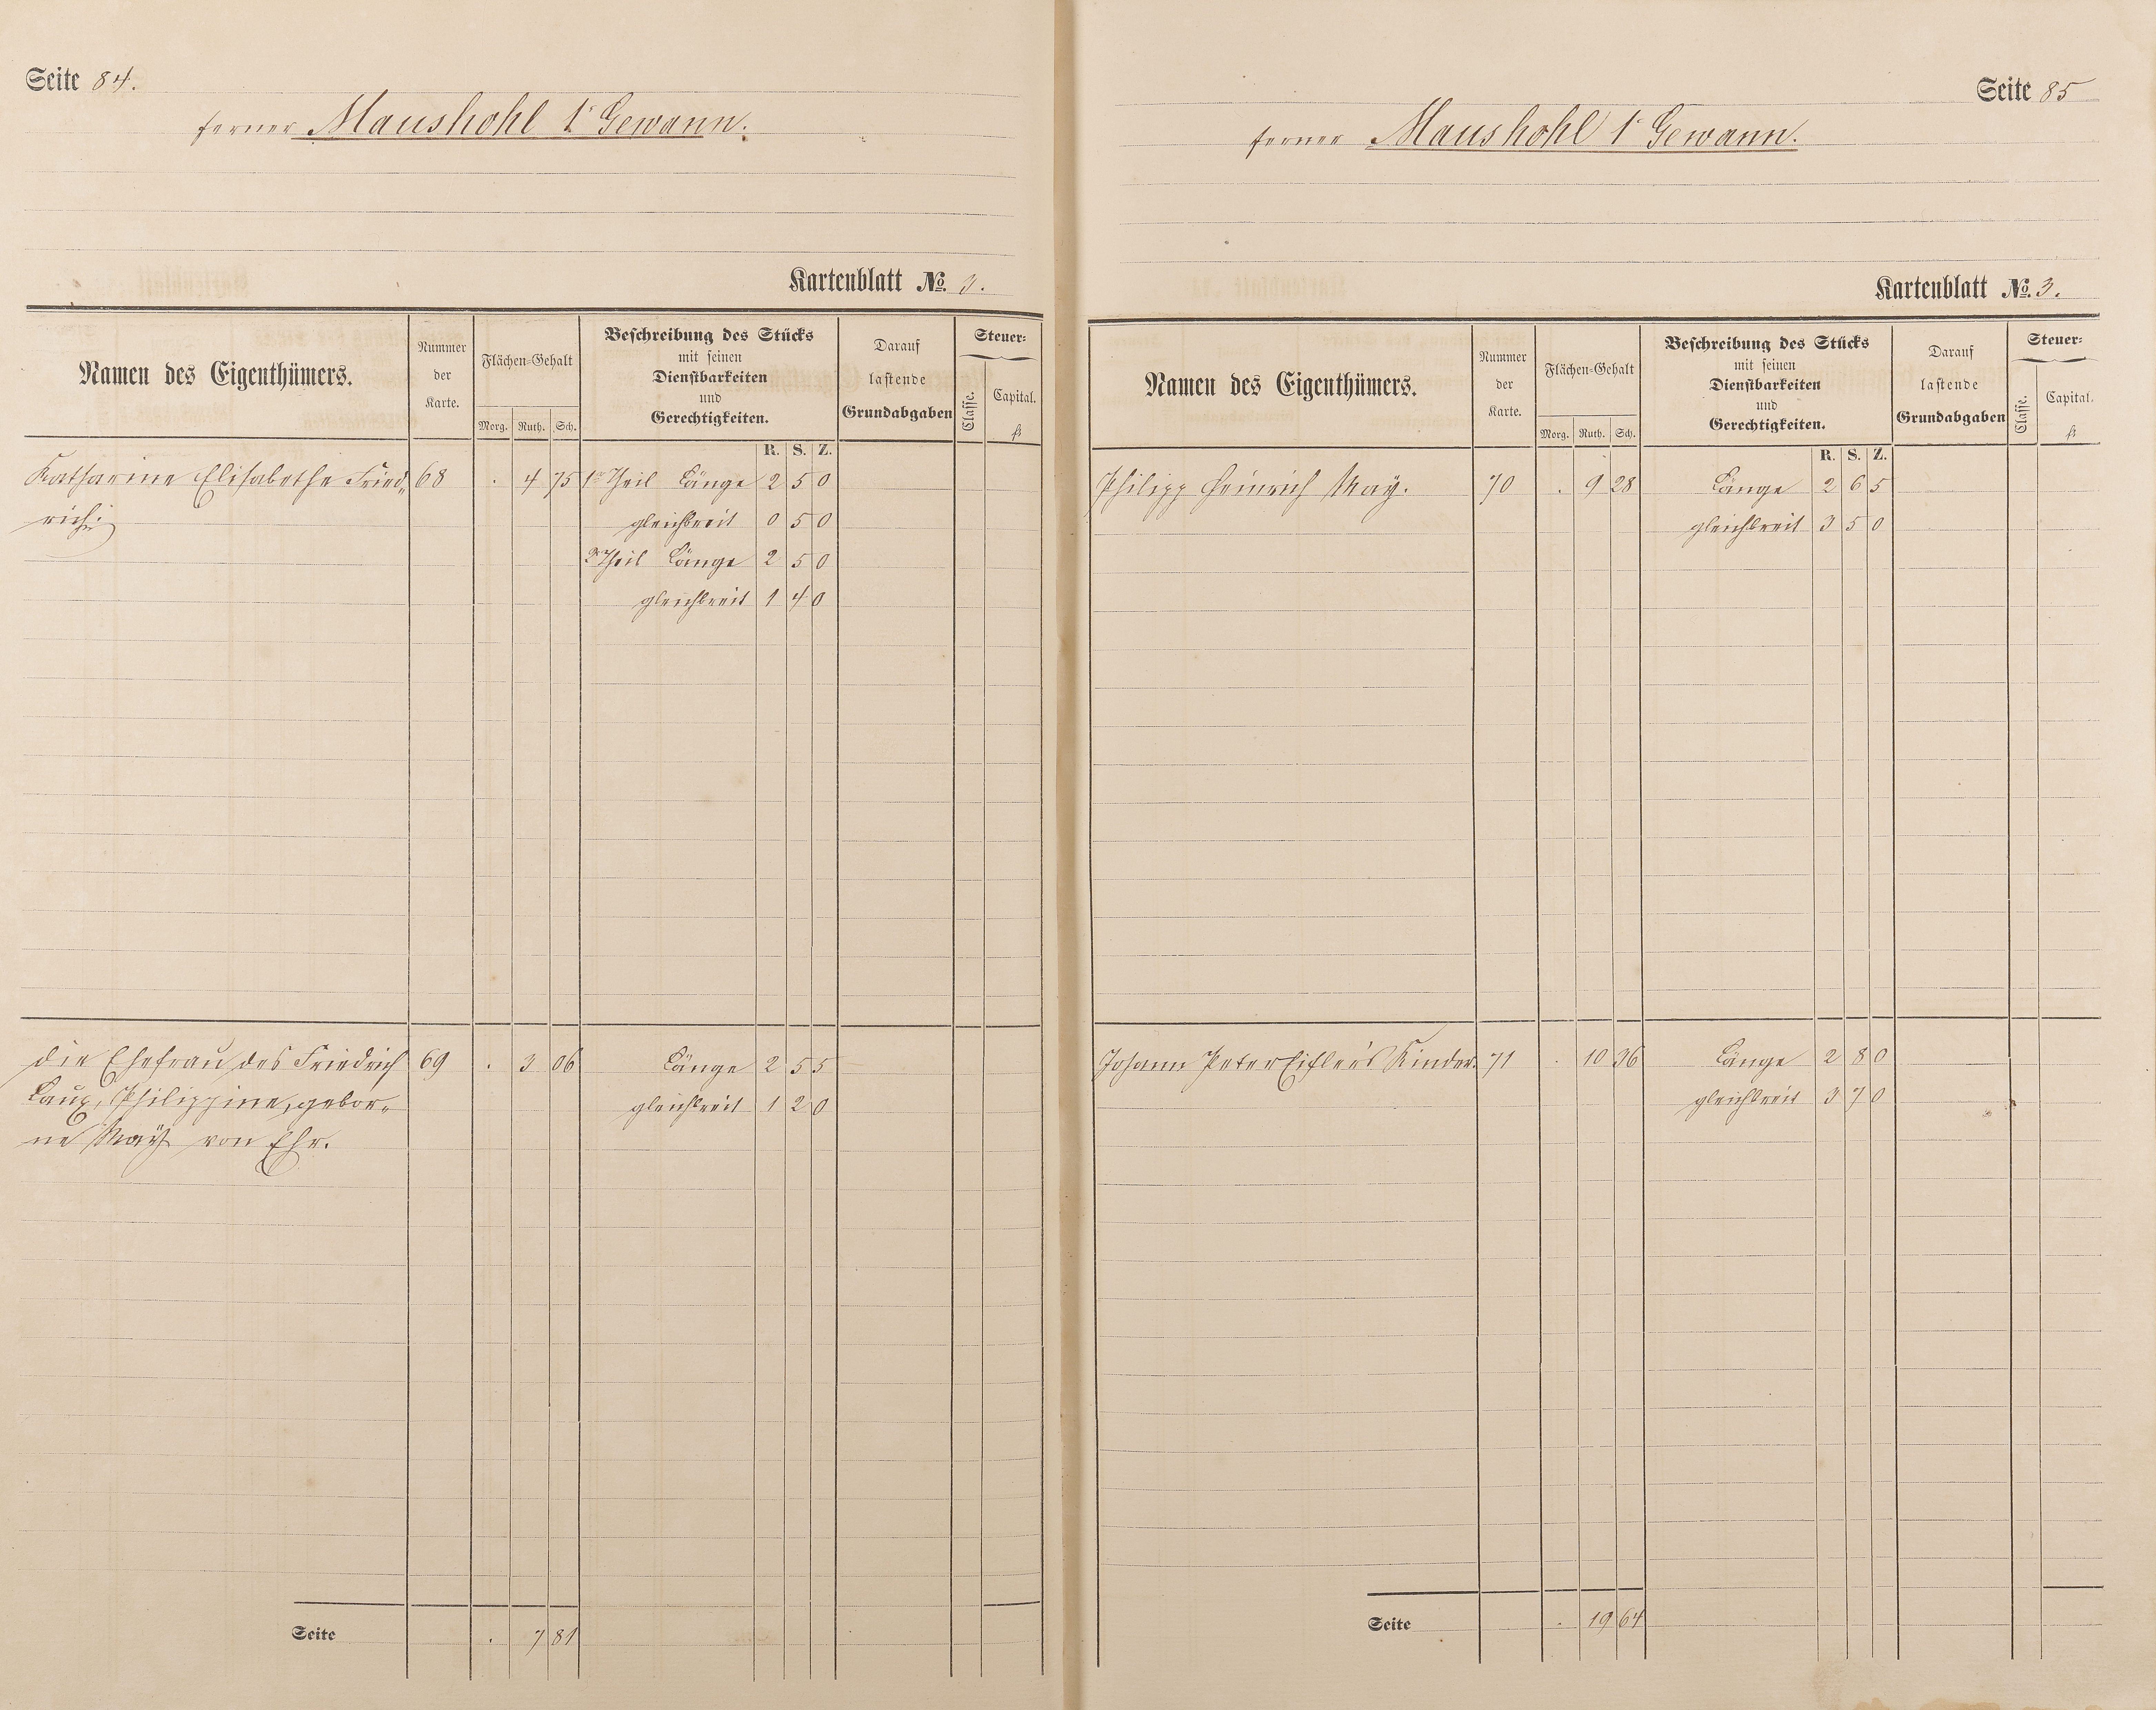 Seite 84.
ferner Maushohl 1r Gewann.
Kartenblatt No. 3.
Namen des Eigenthümers.
Nummer
der
Karte.
Flächen-Gehalt
Morg. Ruth. Sch.
Beschreibung des Stücks
mit seinen
Dienstbarkeiten
und
Gerechtigkeiten.
Darauf
lastende
Grundabgaben
Steuer-
Classe.
Capital.
fl
R. S. Z.
Katharine Elisabethe Fried- 68 . 4 75 1r Theil Länge 2 5 0
rich. gleichbreit 0 5 0
2r Theil Länge 2 5 0
gleichbreit 1 4 0
die Ehefrau des Friedrich 69 . 3 06 Länge 2 5 5
Laux, Philippine, gebor- gleichbreit 1 2 0
ne Maÿ von Ehr.
Seite . 7 81
Seite 85
ferner Maushohl 1r Gewann.
Kartenblatt No. 3.
Namen des Eigenthümers.
Nummer
der
Karte.
Flächen-Gehalt
Morg. Ruth. Sch.
Beschreibung des Stücks
mit seinen
Dienstbarkeiten
und
Gerechtigkeiten.
Darauf
lastende
Grundabgaben
Steuer-
Classe.
Capital.
fl
R. S. Z.
Philipp Heinrich Maÿ. 70 . 9 28 Länge 2 6 5
gleichbreit 3 5 0
Johann Peter Eifler's Kinder. 71 . 10 36 Länge 2 8 0
gleichbreit 3 7 0
Seite . 19 64